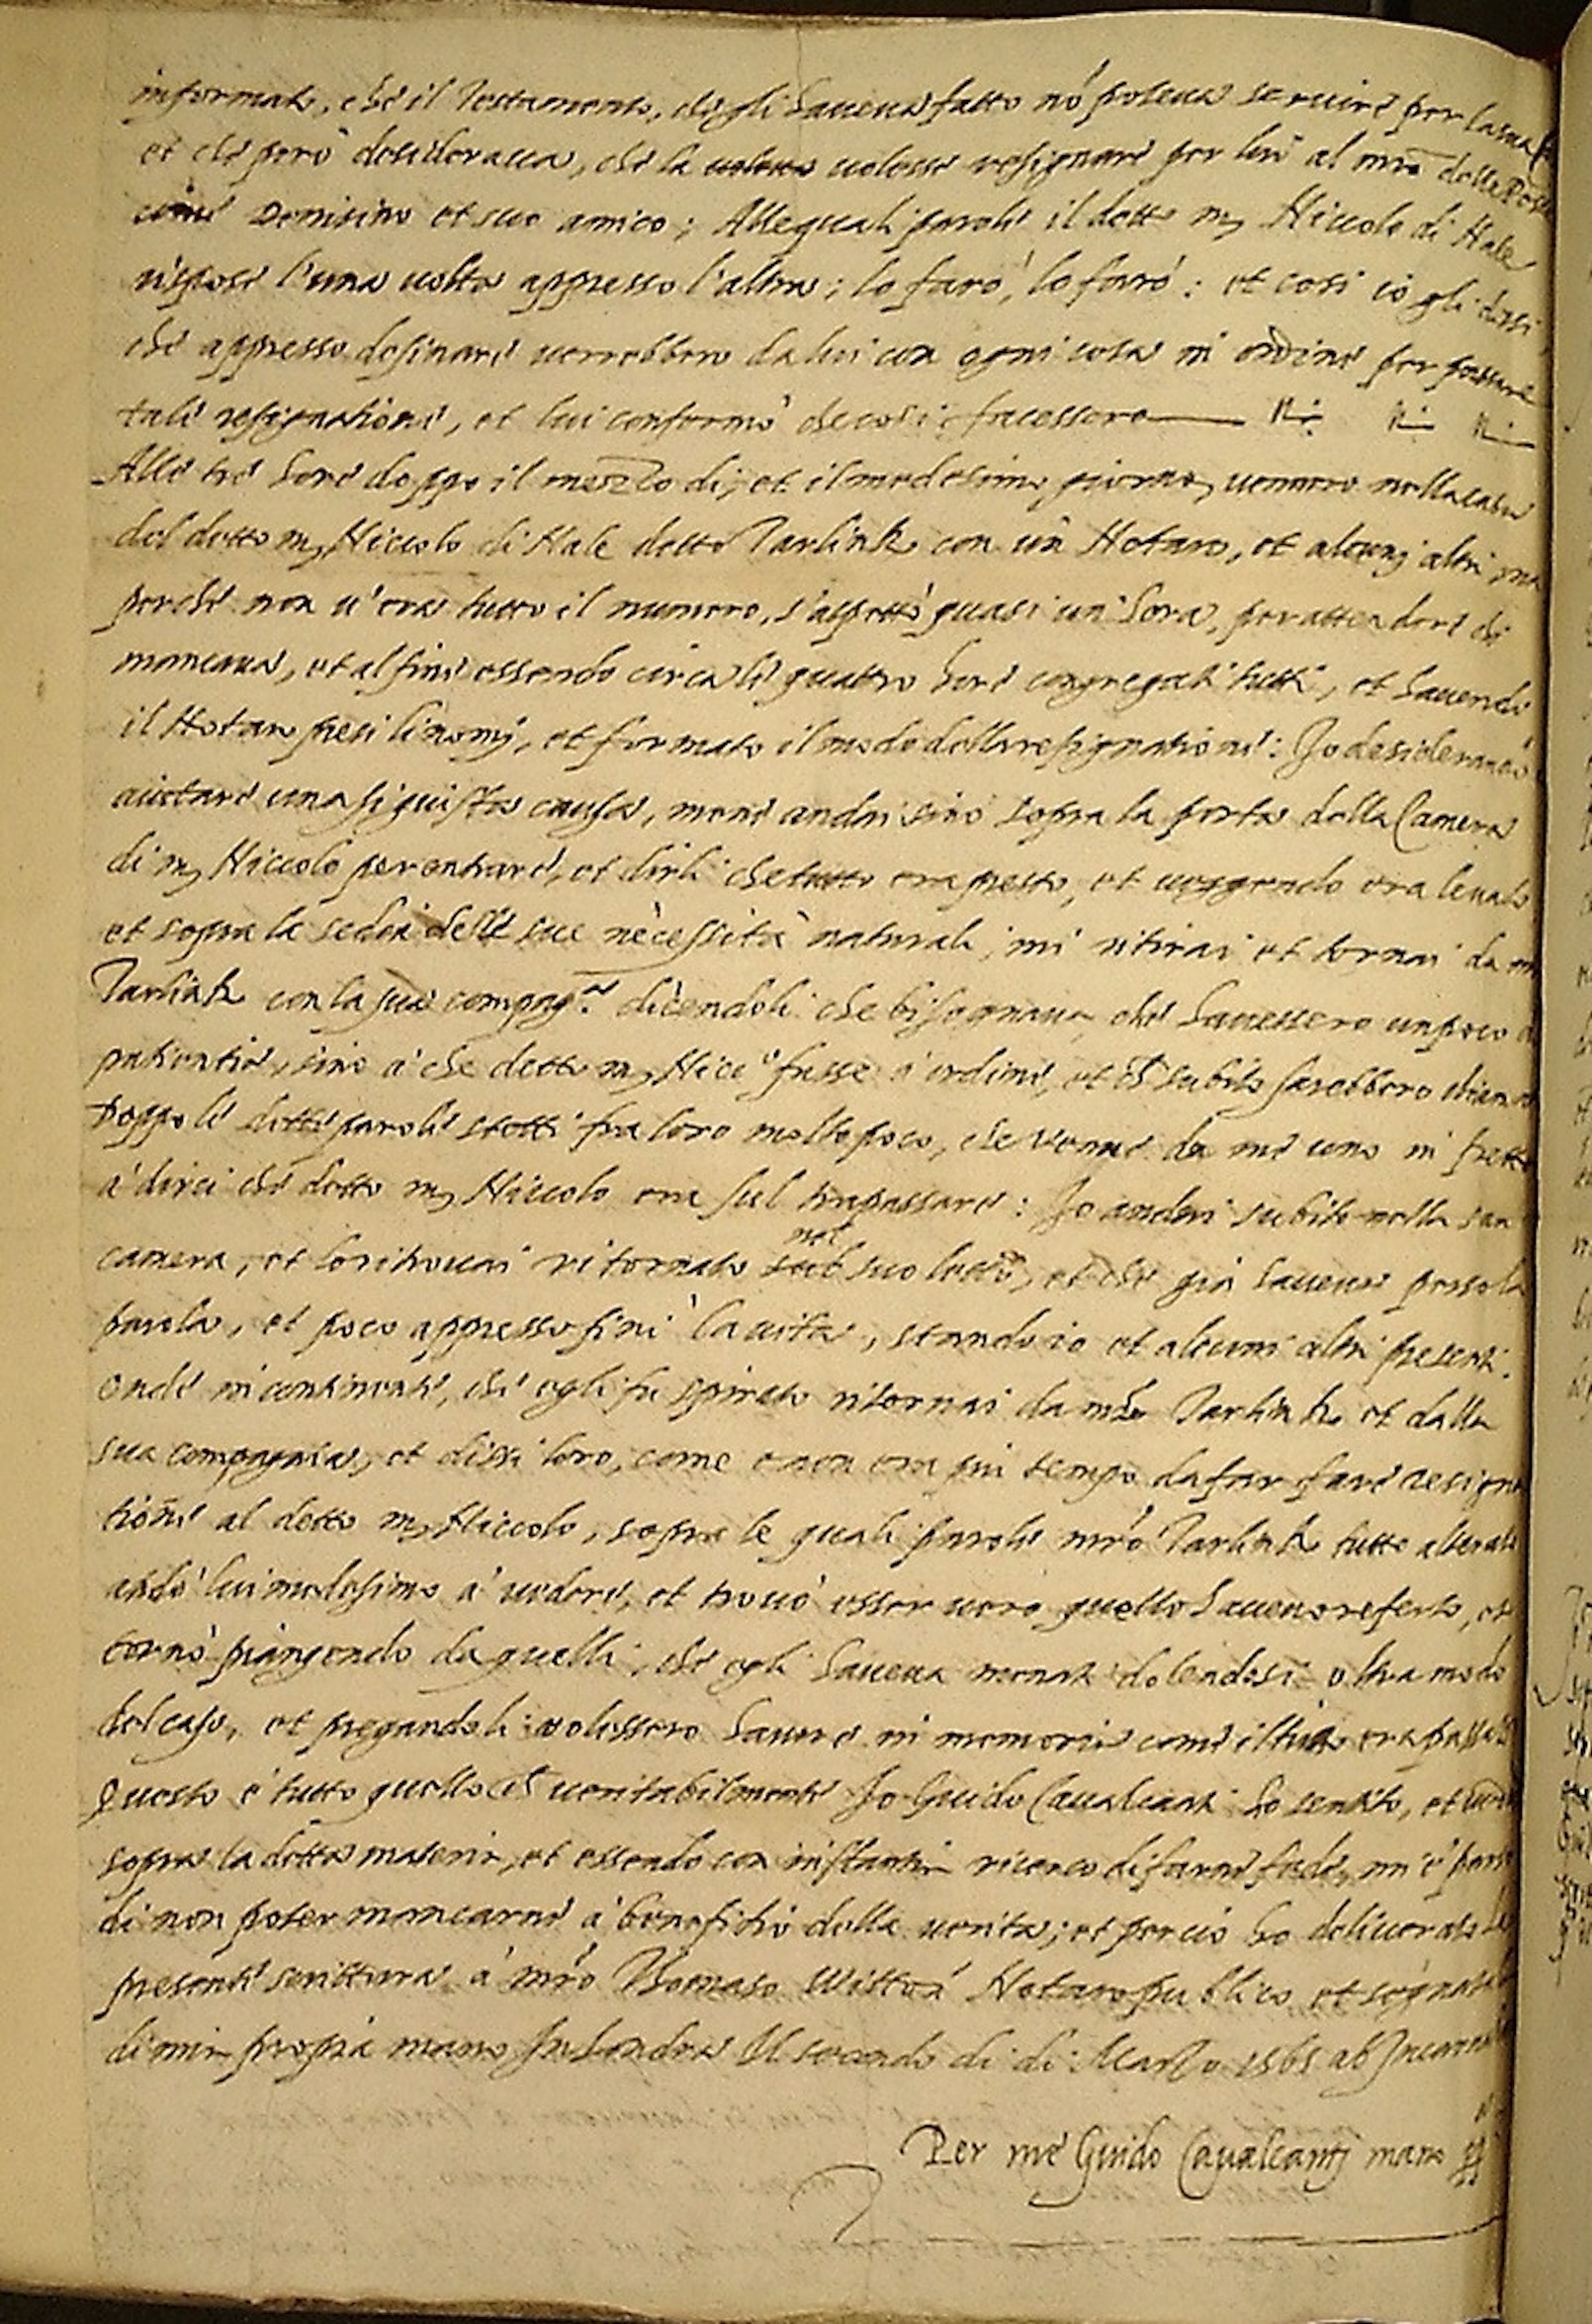 informato, che il Testamento, ch'egli haueua fatto nō poteua seruire per la sua
et che però desideraua, che la uolesse resignare per lui al mrō delle Poste
come Domisino et suo amico; Allequali parole il detto m, Niccolo di Nale
rispose l'una uolta appresso l'altra; lo farò, lo farò: et cosi io gli dissi,
che appresso desinare uerrebbero da lui con ogni cosa in ordine per passare
tale resignatione, et lui confermò che cosi facessero
Alle tre hore doppo il mezzo di, et il medesimo giorno, uennero nella casa
del detto m, Niccolo di Nale detto Tarlink con un Notaro, et alcunj altri ma
perche non u'era tutto il numero, s'aspettò quasi un'hora, per attendere chi
mancaua, et al fine essendo circa le quattro hore congregati tutti, et hauendo
il Notaro presi li nomj, et formato il modo della resignatione: Jo desiderando
aiutare una si giusta causa, mene andai sino sopra la porta della Camera
di m, Niccolo per entrare, et dirli che tutto era presto, et ueggendo era leuato
et sopra la sedia delle sue necessità naturali, mi ritirai et tornai da
Tarlink con la sua compag.ª dicendoli che bisognaua che hauessero un poco di
patientia, sino à che detto m, Nicº fusse à ordine, et ch subito sarebbero
Doppo le dette parole stetti fra loro molto poco, che venne da me uno in fretta
à dirci che detto m, Niccolo era sul trapassare: Jo andai subito nella sua
camera, et lo ritrouai ritornato nel suo letto, et che già haueua perso la
parola, et poco appresso finì la uita, stando io et alcuni altri presenti.
Onde incontinente, che egli fu spirato ritornai da mrō Tarlink et dalla
sua compagnia, et dissi loro, come e non era piu tempo da far fare resigna
tione al detto m, Niccolo, sopra le quali parole mrō Tarlink tutto alterato
andò lui medesimo à uedere, et trouò esser uero quello haueuo referto, et
tornò piangendo da quelli, che egli haueua menati dolendosi oltra modo
del caso, et pregandoli uolessero hauere in memoria come il tutto era passato
Questo è tutto quello ch ueritabilmente Jo Guido Caualcanti ho sentito, et
sopra la detta materia, et essendo con instantia ricerco di farne fede, mi è parso
di non poter mancarne à benefitio della uerita; et perciò ho deliuerato la
presente scrittura à mrō Thomaso Witton Notaro publico, et segnata
di mia propria mano In Londra Il secondo di di Marzo 1565 ab Incarnat
Per me Guido Caualcantj mano